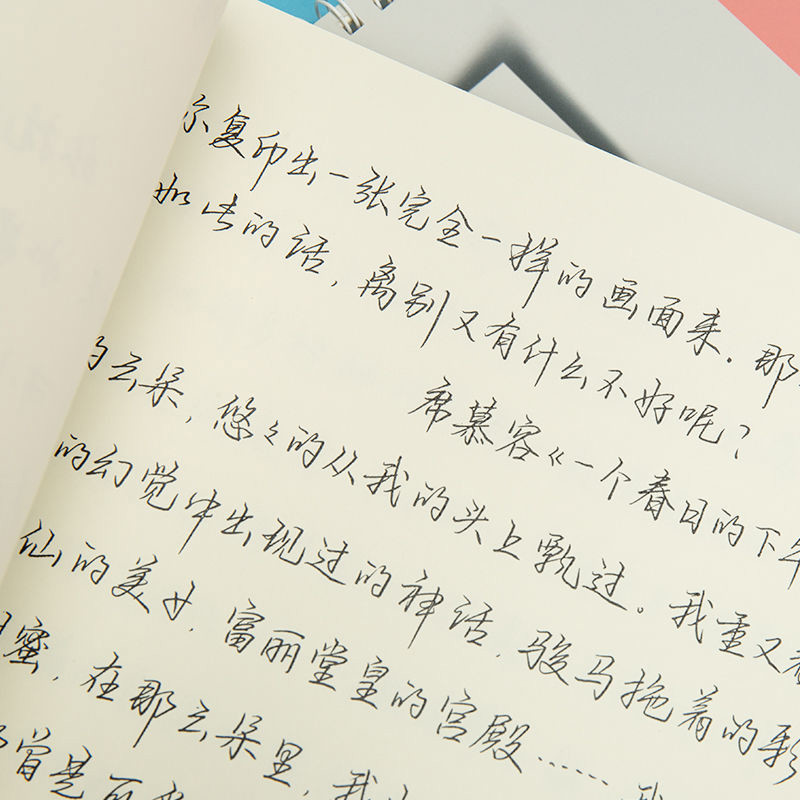 尔复印出一张完全一样的画面来.那
如此的话,离别又有什么不好呢?
席慕容《一个春日的下午
的云朵,悠々的从我的头上飘过。我重又看
的幻觉中出现过的神话.骏马拖着的彩
仙的美女.富丽堂皇的宫殿……我
蜜,在那云朵里,我
曾是